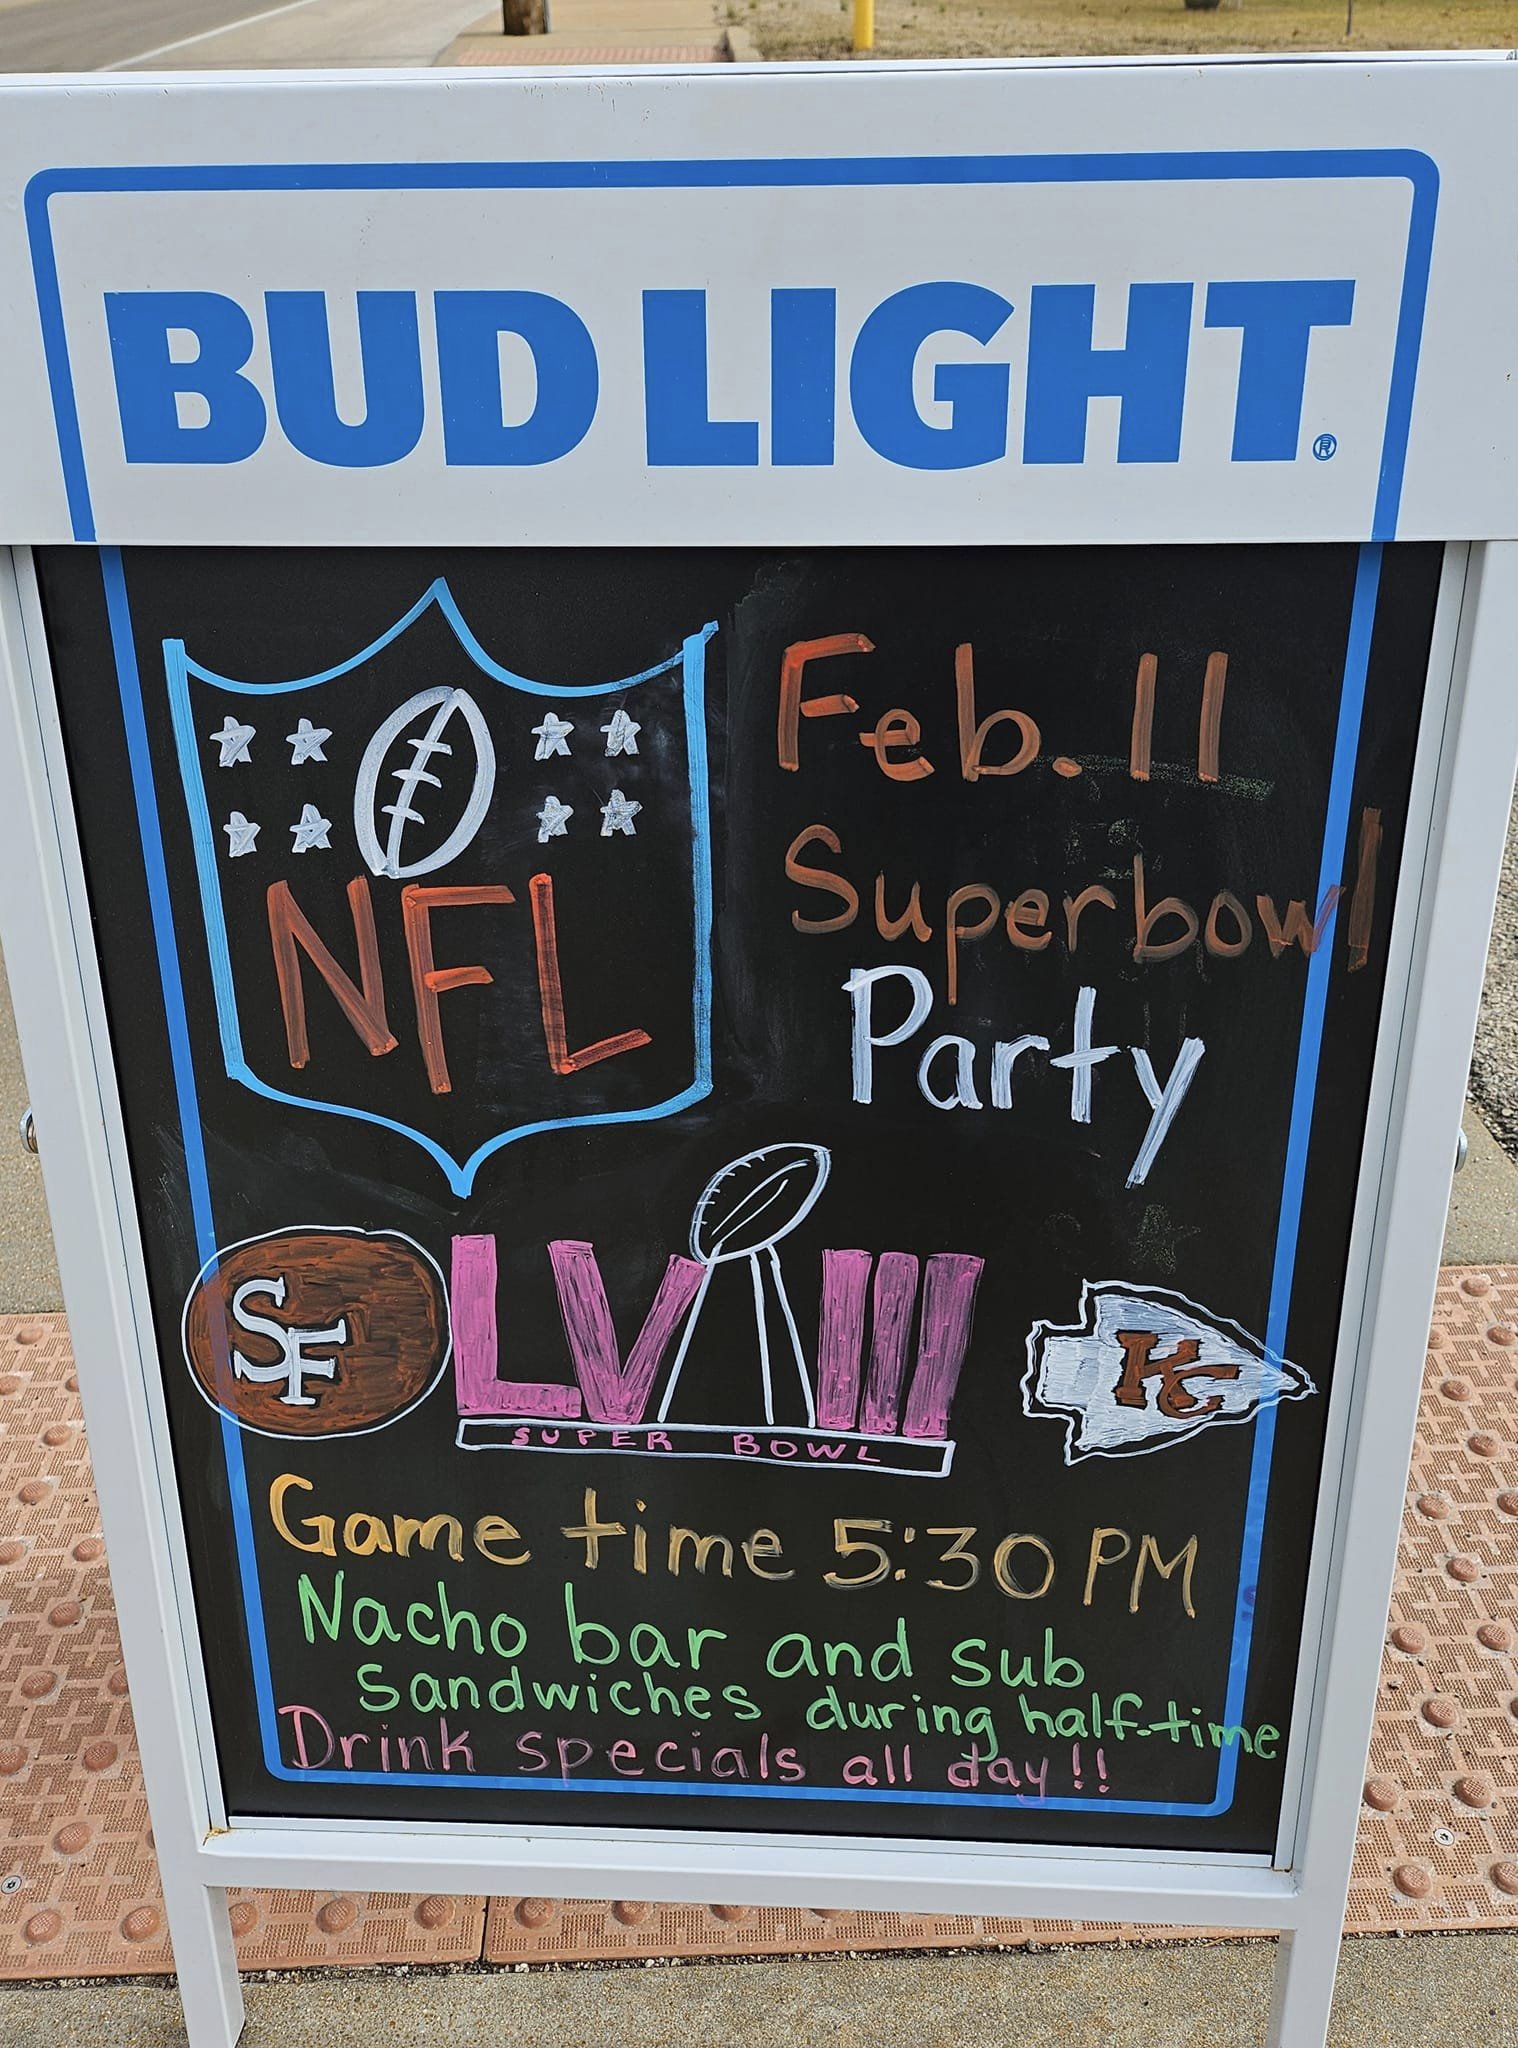 BUD LIGHT®
NFL
Feb. 11
Superbowl
Party
SF
LVIII
SUPER BOWL
KC
Game time 5:30 PM
Nacho bar and sub
Sandwiches during half-time
Drink specials all day!!